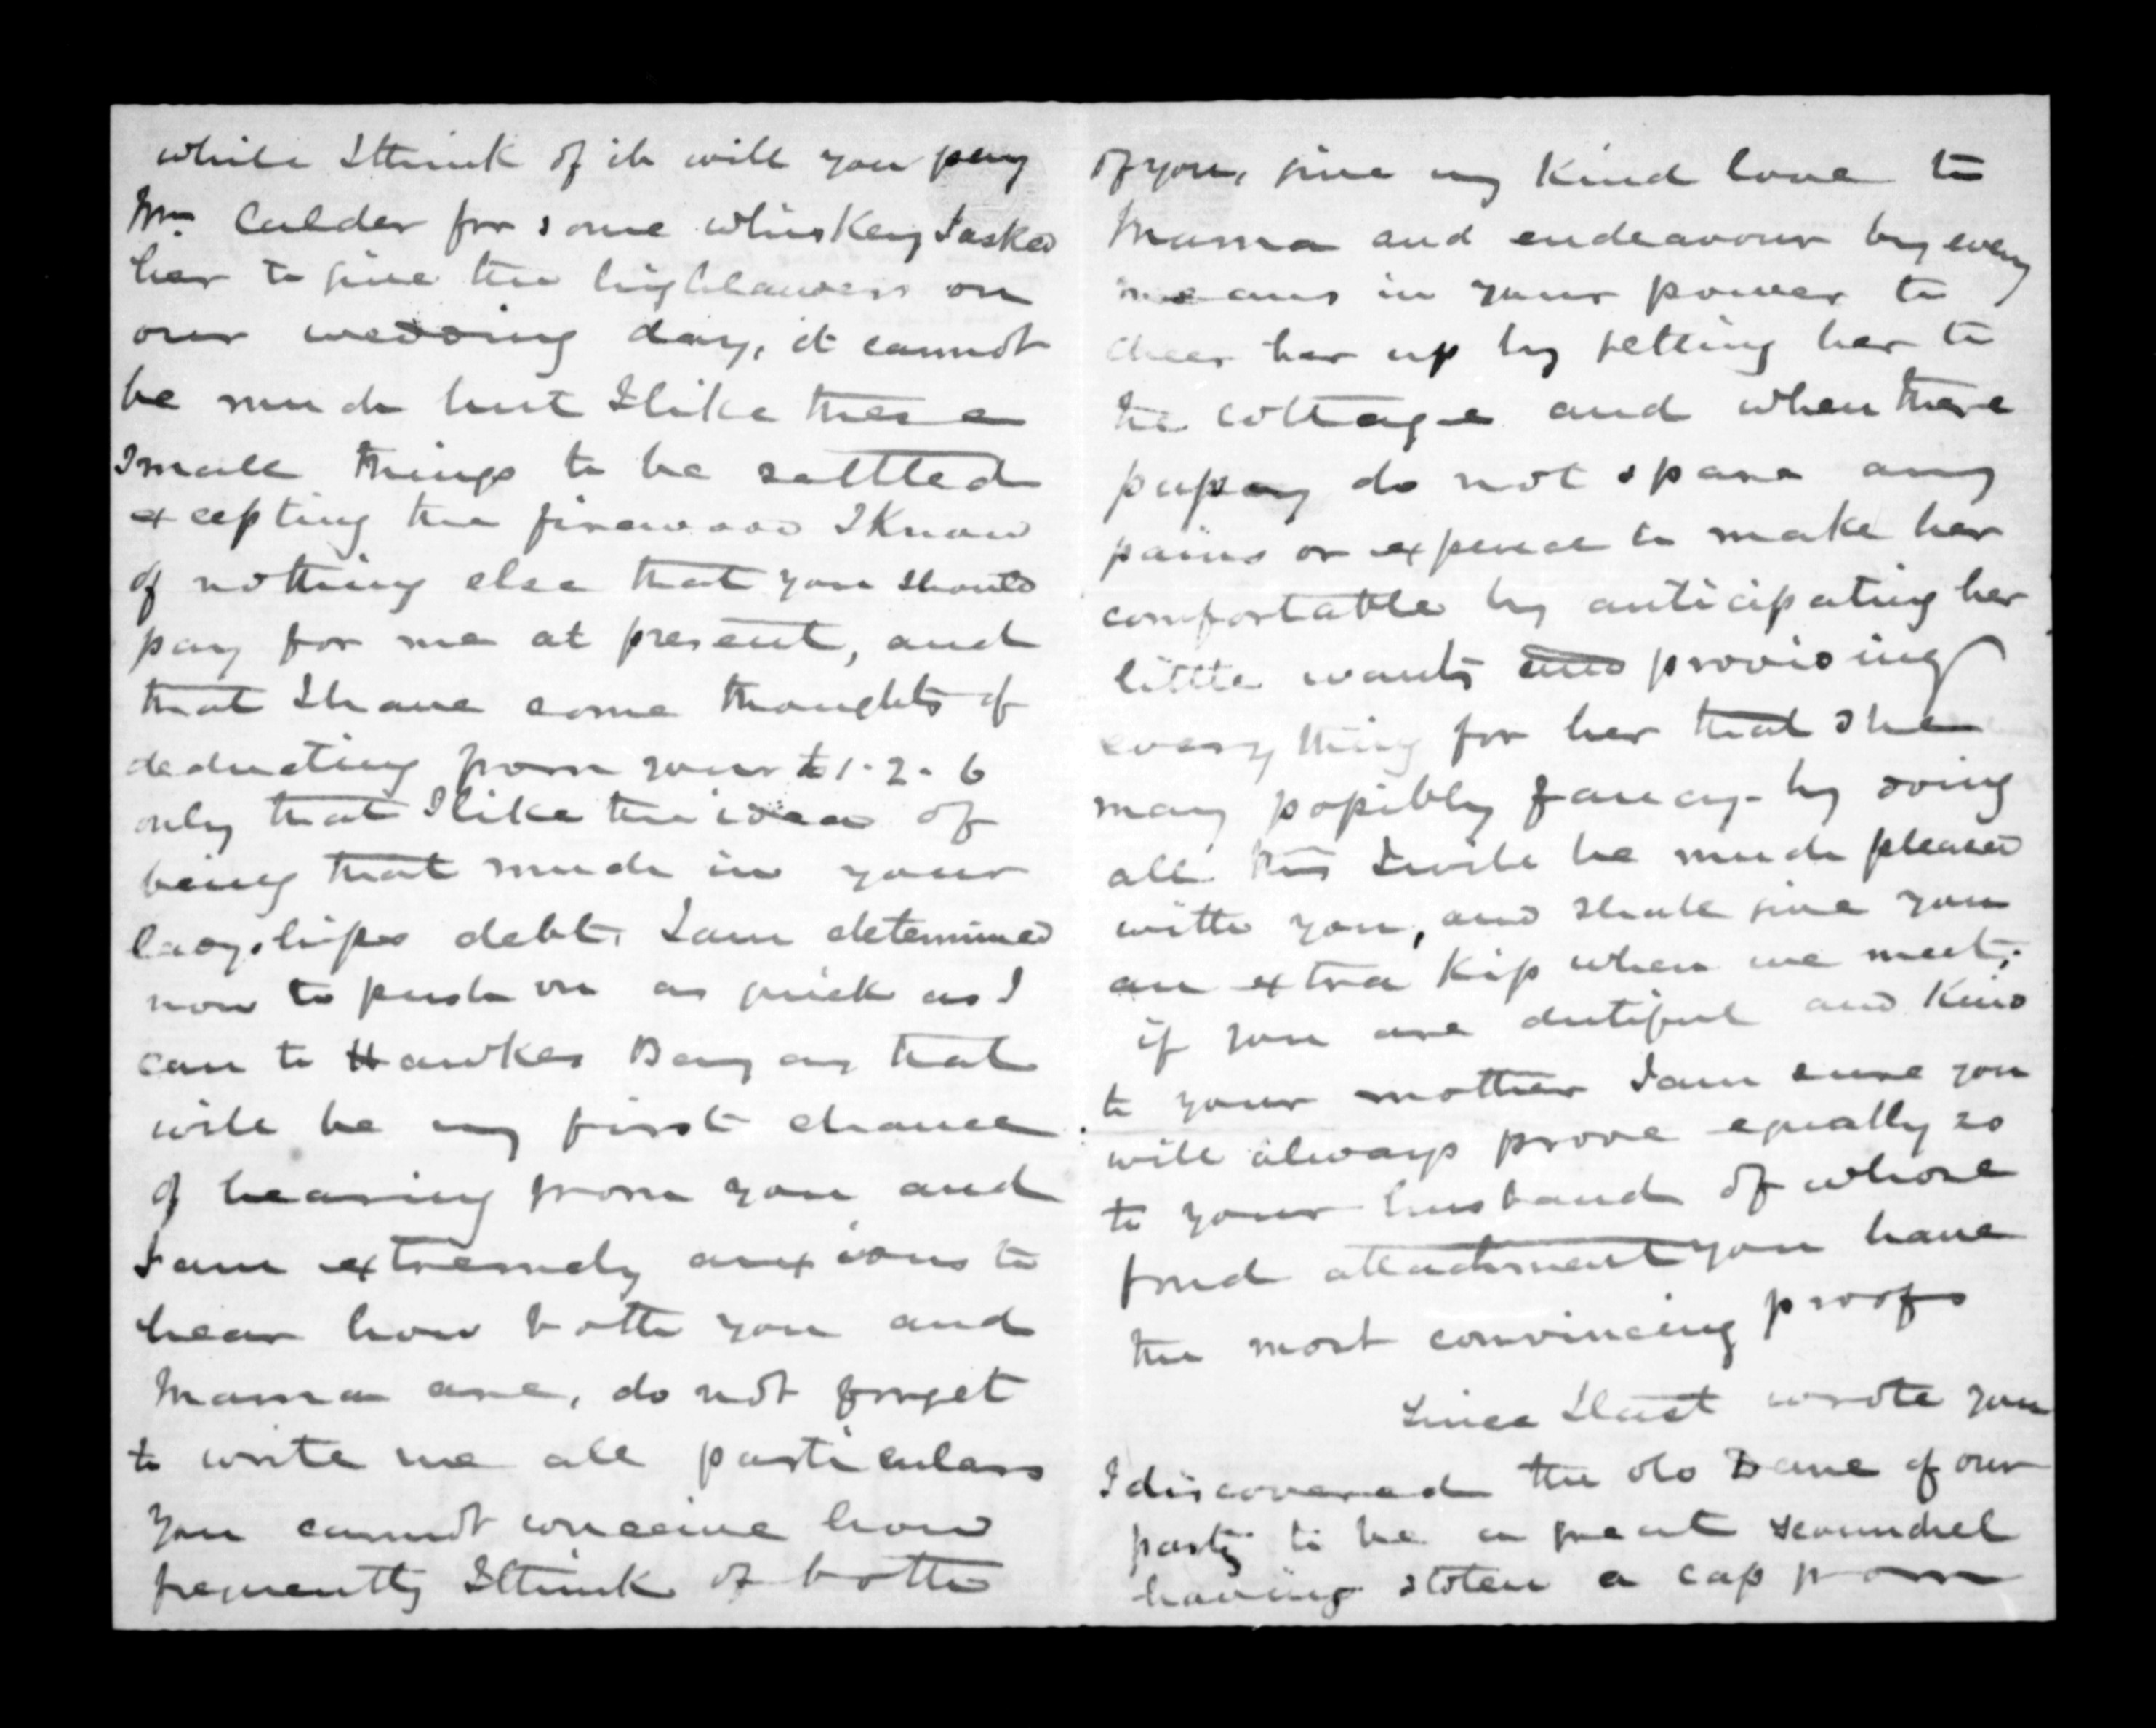 while I think of it will you pay
Mrs Calder for some whiskey I asked
her to give the highlanders on
our wedding day, it cannot
be much but I like these
small things to be settled
excepting the firewood I know
of nothing else that you should
pay for me at present, and
that I have some thoughts of
deducting from your £1-2-6
only that I like the idea of
being that much in your
ladyships debt. I am determined
now to push on as quick as I
can to Hawkes Bay as that
will be my first chance
of hearing from you and
I am extremely anxious to
hear how both you and
Mama are, do not forget
to write me all particulars
you cannot conceive how
frequently I think of both
of you, give my kind love to
Mama and endeavour by every
means in your power to
cheer her up by getting her to
the cottage and when there
do not spare any
pains or expence to make her
comfortable by anticipating her
little wants and providing
everything for her that she
may possibly fancy - by doing
all this I will be much pleased
with you, and shall give you
an extra Kiss when we meet;
if you are dutiful and Kind
to your mother I am sure you
will always prove equally so
to your husband of whose
fond attachment you have
the most convincing proofs
Since I last wrote you
I discovered the old Dane of our
party to be a great scoundrel
having stolen a cap from